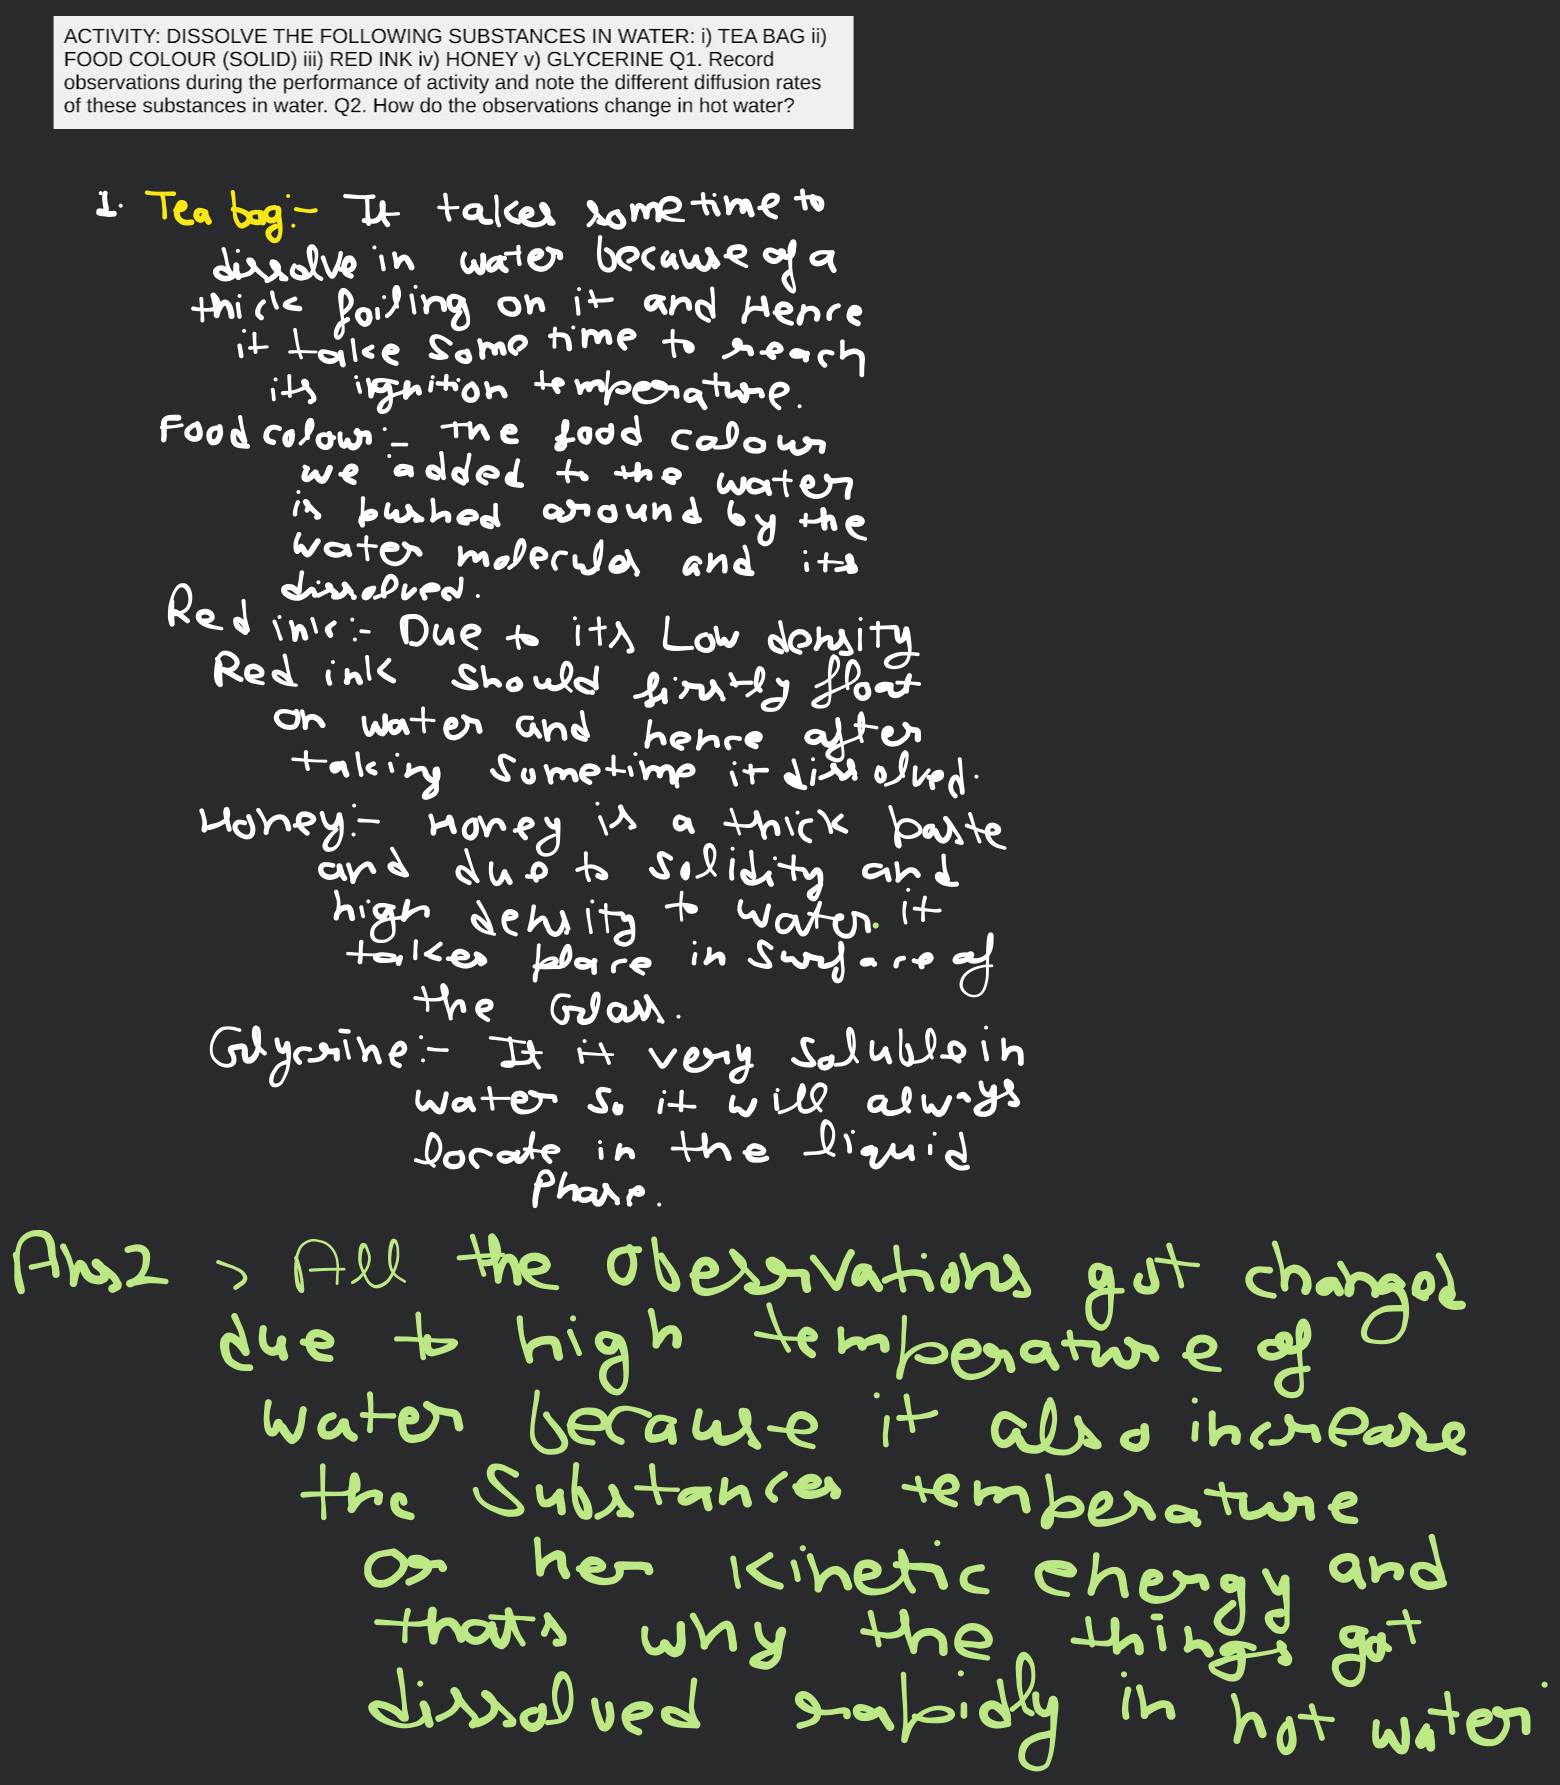 ACTIVITY: DISSOLVE THE FOLLOWING SUBSTANCES IN WATER: i) TEA BAG ii)
FOOD COLOUR (SOLID) iii) RED INK iv) HONEY v) GLYCERINE Q1. Record
observations during the performance of activity and note the different diffusion rates
of these substances in water. Q2. How do the observations change in hot water?
1. Tea bag:- It takes sometime to
dissolve in water because of a
thick foiling on it and Hence
it take some time to reach
its ignition temperature.
Food colour:- The food colour
we added to the water
is pushed around by the
water molecules and its
dissolved.
Red ink:- Due to its Low density
Red ink should firstly float
on water and hence after
taking sometime it dissolved.
Honey:- Honey is a thick paste
and due to solidity and
high density to water. it
takes place in surface of
the Glass.
Glycerine:- It is very soluble in
water so it will always
locate in the liquid
Phase.
Ans2 > All the observations got changed
due to high temperature of
water because it also increase
the Substances temperature
or her kinetic energy and
thats why the things got
dissolved rapidly in hot water.